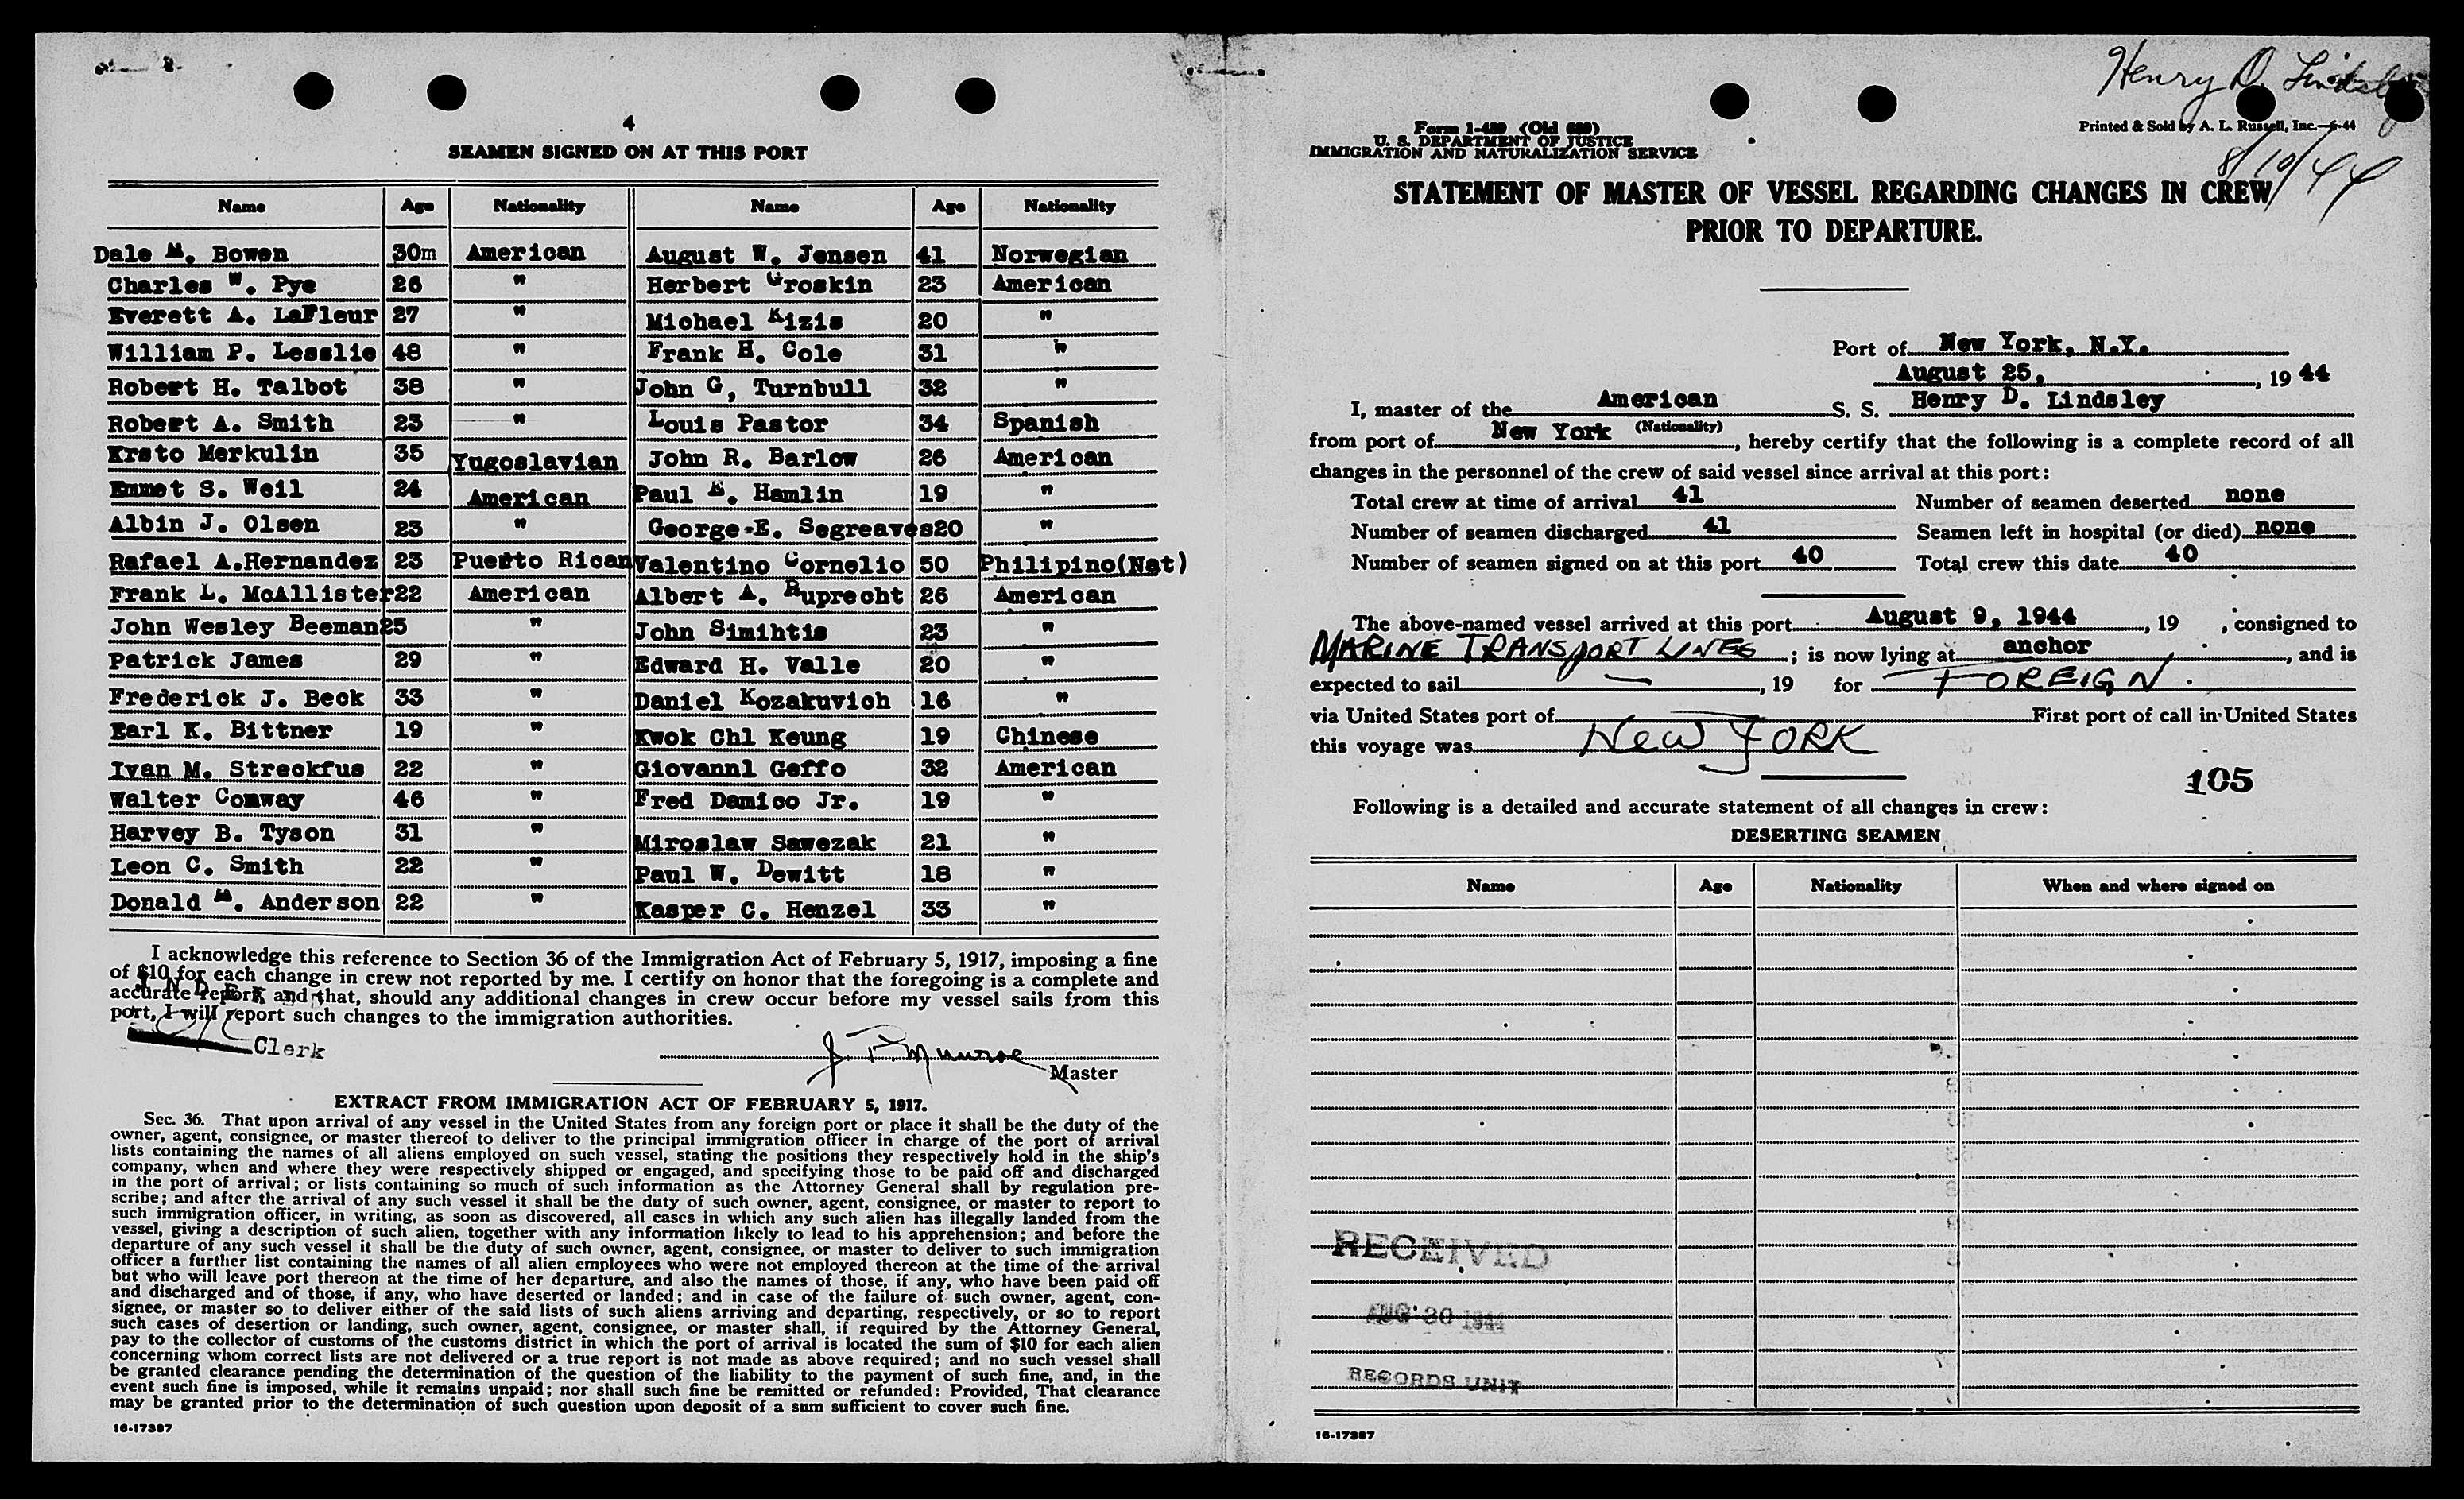 4
SEAMEN SIGNED ON AT THIS PORT
Name Age Nationality Name Age Nationality
Dale M. Bowen 30m American August W. Jensen 41 Norwegian
Charles W. Pye 26 " Herbert Groskin 23 American
Everett A. LaFleur 27 " Michael Kizis 20 "
William P. Lesslie 48 " Frank H. Cole 31 "
Robert H. Talbot 38 " John G, Turnbull 32 "
Robert A. Smith 23 " Louis Pastor 34 Spanish
Krsto Merkulin 35 Yugoslavian John R. Barlow 26 American
Emmet S. Weil 24 American Paul E. Hamlin 19 "
Albin J. Olsen 23 " George E. Segreaves20 "
Rafael A.Hernandez 23 Puerto Rican Valentino Cornelio 50 Philipino(Nat)
Frank L. McAllister22 American Albert A. Ruprecht 26 American
John Wesley Beeman25 " John Simihtis 23 "
Patrick James 29 " Edward H. Valle 20 "
Frederick J. Beck 33 " Daniel Kozakuvich 16 "
Earl K. Bittner 19 " Kwok Chl Keung 19 Chinese
Ivan M. Streckfus 22 " Giovannl Geffo 32 American
Walter Conway 46 " Fred Damico Jr. 19 "
Harvey B. Tyson 31 " Miroslaw Sawezak 21 "
Leon C. Smith 22 " Paul W. Dewitt 18 "
Donald M. Anderson 22 " Kasper C. Henzel 33 "
I acknowledge this reference to Section 36 of the Immigration Act of February 5, 1917, imposing a fine
of $10 for each change in crew not reported by me. I certify on honor that the foregoing is a complete and
accurate report, and that, should any additional changes in crew occur before my vessel sails from this
port, I will report such changes to the immigration authorities.
Clerk
J. P. Munroe
Master
EXTRACT FROM IMMIGRATION ACT OF FEBRUARY 5, 1917.
Sec. 36. That upon arrival of any vessel in the United States from any foreign port or place it shall be the duty of the
owner, agent, consignee, or master thereof to deliver to the principal immigration officer in charge of the port of arrival
lists containing the names of all aliens employed on such vessel, stating the positions they respectively hold in the ship's
company, when and where they were respectively shipped or engaged, and specifying those to be paid off and discharged
in the port of arrival; or lists containing so much of such information as the Attorney General shall by regulation pre-
scribe; and after the arrival of any such vessel it shall be the duty of such owner, agent, consignee, or master to report to
such immigration officer, in writing, as soon as discovered, all cases in which any such alien has illegally landed from the
vessel, giving a description of such alien, together with any information likely to lead to his apprehension; and before the
departure of any such vessel it shall be the duty of such owner, agent, consignee, or master to deliver to such immigration
officer a further list containing the names of all alien employees who were not employed thereon at the time of the arrival
but who will leave port thereon at the time of her departure, and also the names of those, if any, who have been paid off
and discharged and of those, if any, who have deserted or landed; and in case of the failure of such owner, agent, con-
signee, or master so to deliver either of the said lists of such aliens arriving and departing, respectively, or so to report
such cases of desertion or landing, such owner, agent, consignee, or master shall, if required by the Attorney General,
pay to the collector of customs of the customs district in which the port of arrival is located the sum of $10 for each alien
concerning whom correct lists are not delivered or a true report is not made as above required; and no such vessel shall
be granted clearance pending the determination of the question of the liability to the payment of such fine, and, in the
event such fine is imposed, while it remains unpaid; nor shall such fine be remitted or refunded: Provided, That clearance
may be granted prior to the determination of such question upon deposit of a sum sufficient to cover such fine.
16-17387
Henry D. Lindsley
8/10/44
Form I-489 (Old 689)
U. S. DEPARTMENT OF JUSTICE
IMMIGRATION AND NATURALIZATION SERVICE
Printed & Sold by A. L. Russell, Inc.—6-44
STATEMENT OF MASTER OF VESSEL REGARDING CHANGES IN CREW
PRIOR TO DEPARTURE.
Port of New York, N.Y.
August 25, , 19 44
I, master of the American S. S. Henry D. Lindsley
(Nationality)
from port of New York , hereby certify that the following is a complete record of all
changes in the personnel of the crew of said vessel since arrival at this port:
Total crew at time of arrival 41 Number of seamen deserted none
Number of seamen discharged 41 Seamen left in hospital (or died) none
Number of seamen signed on at this port 40 Total crew this date 40
The above-named vessel arrived at this port August 9, 1944 , 19 , consigned to
MARINE TRANSPORT LINES ; is now lying at anchor , and is
expected to sail — , 19 for FOREIGN.
via United States port of First port of call in United States
this voyage was New YORK
105
Following is a detailed and accurate statement of all changes in crew:
DESERTING SEAMEN
Name Age Nationality When and where signed on
RECEIVED
AUG 30 1944
RECORDS UNIT
16-17387